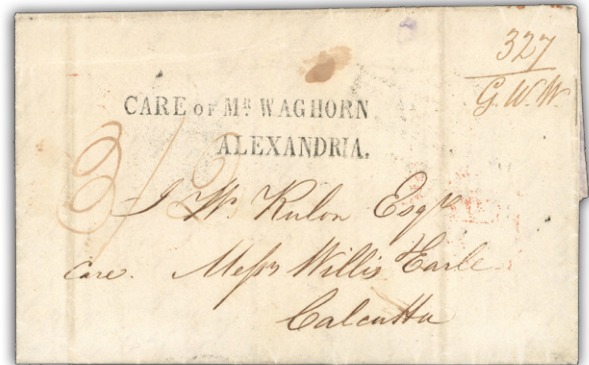 327
G.W.W
CARE OF MR WAGHORN
ALEXANDRIA.
3/
J W. Esqre
Care. Messrs Willis Earle
Calcutta